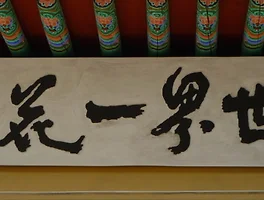 世界一花